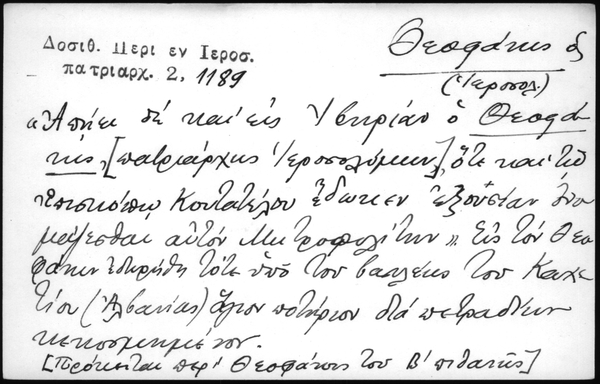 Δοσιθ. Περι εν Ιεροσ.
πατριαρχ. 2, 1189
Θεοφάνης ὁ
(Ἱεροσολ.)
«Ἀπῄει δὲ καὶ εἰς Ἰβηρίαν ὁ Θεοφά
νης, [πατριάρχης Ἱεροσολύμων], ὅτε καὶ τῷ
Ἐπισκόπῳ Κουτατέλου ἔδωκεν ἐξουσίαν ὀνο
μάζεσθαι αὐτὸν Μητροπολίτην». Εἰς τὸν Θεο
φάνην ἐδωρήθη τότε ὑπὸ τοῦ βασιλέως τοῦ Καχε
τίου (Ἀλβανίας) ἅγιον ποτήριον διὰ πετραδίων
κεκοσμημένον.
[Πρόκειται περὶ Θεοφάνους τοῦ Β΄ πιθανῶς]